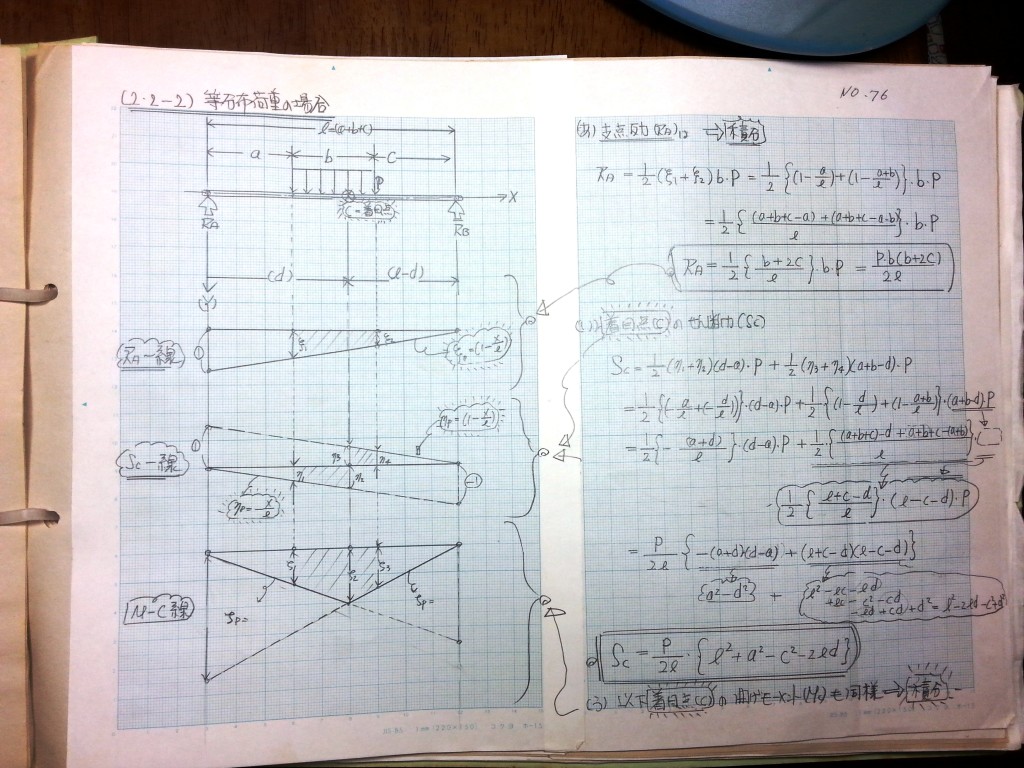 (2·2-2) 等分布荷重の場合
l=(a+b+c)
a b c
P
X
C=着目点
RA RB
(d) (l-d)
(Y)
RA-線
ξ1 ξ2
ξp=(1-x/l)
ηp=(1-x/l)
Sc-線
η1 η3 η2 η4
-1
ηp=-x/l
M-C線
ζ2 ζ3
ζp= ζp=
NO.76
(あ) 支点反力(RA)は ⇒ 積分
RA = 1/2(ξ1+ξ2)b·P = 1/2{(1-a/l)+(1-(a+b)/l)}·b·P
= 1/2{((a+b+c-a)+(a+b+c-a-b))/l}·b·P
RA = 1/2{(b+2c)/l}·b·P = P·b(b+2c)/2l
着目点(C)のせん断力(Sc)
Sc = 1/2(η1+η2)(d-a)·P + 1/2(η3+η4)(a+b-d)·P
= 1/2{(-a/l+(-d/l))}·(d-a)·P + 1/2{(1-d/l)+(1-(a+b)/l)}·(a+b-d)·P
= 1/2{-(a+d)/l}·(d-a)·P + 1/2{((a+b+c)-d+a+b+c-(a+b))/l}·( )
1/2{(l+c-d)/l}·(l-c-d)·P
= P/2l {-(a+d)(d-a) + (l+c-d)(l-c-d)}
{a²-d²} + l²-lc-ld
+lc-c²-cd
-ld+cd+d² = l²-2ld-c²+d²
Sc = P/2l·{l²+a²-c²-2ld}
(3) 以下着目点(C)の曲げモーメント(M)も同様 ⇒ 積分